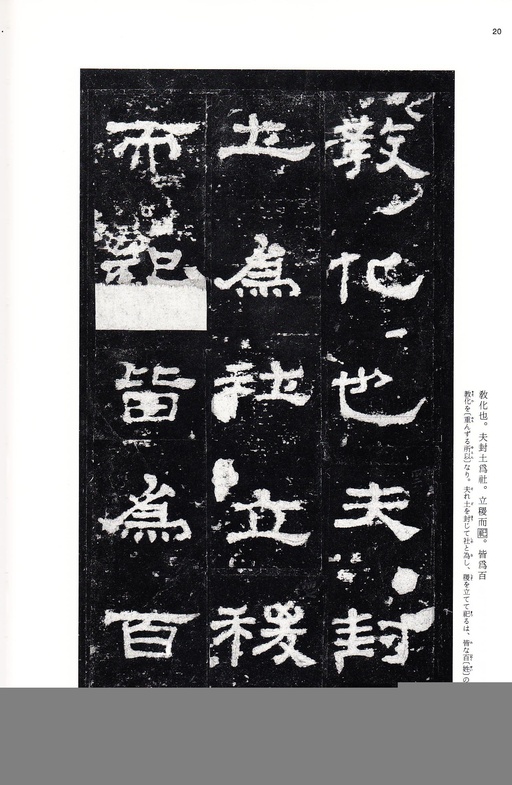 20
敎化也夫封
土爲社立稷
而祀皆爲百
敎化也。夫封土爲社。立稷而祀。皆爲百
教化を〔重んずる所以〕なり。夫れ土を封じて社と為し、稷を立てて祀るは、皆な百〔姓〕の